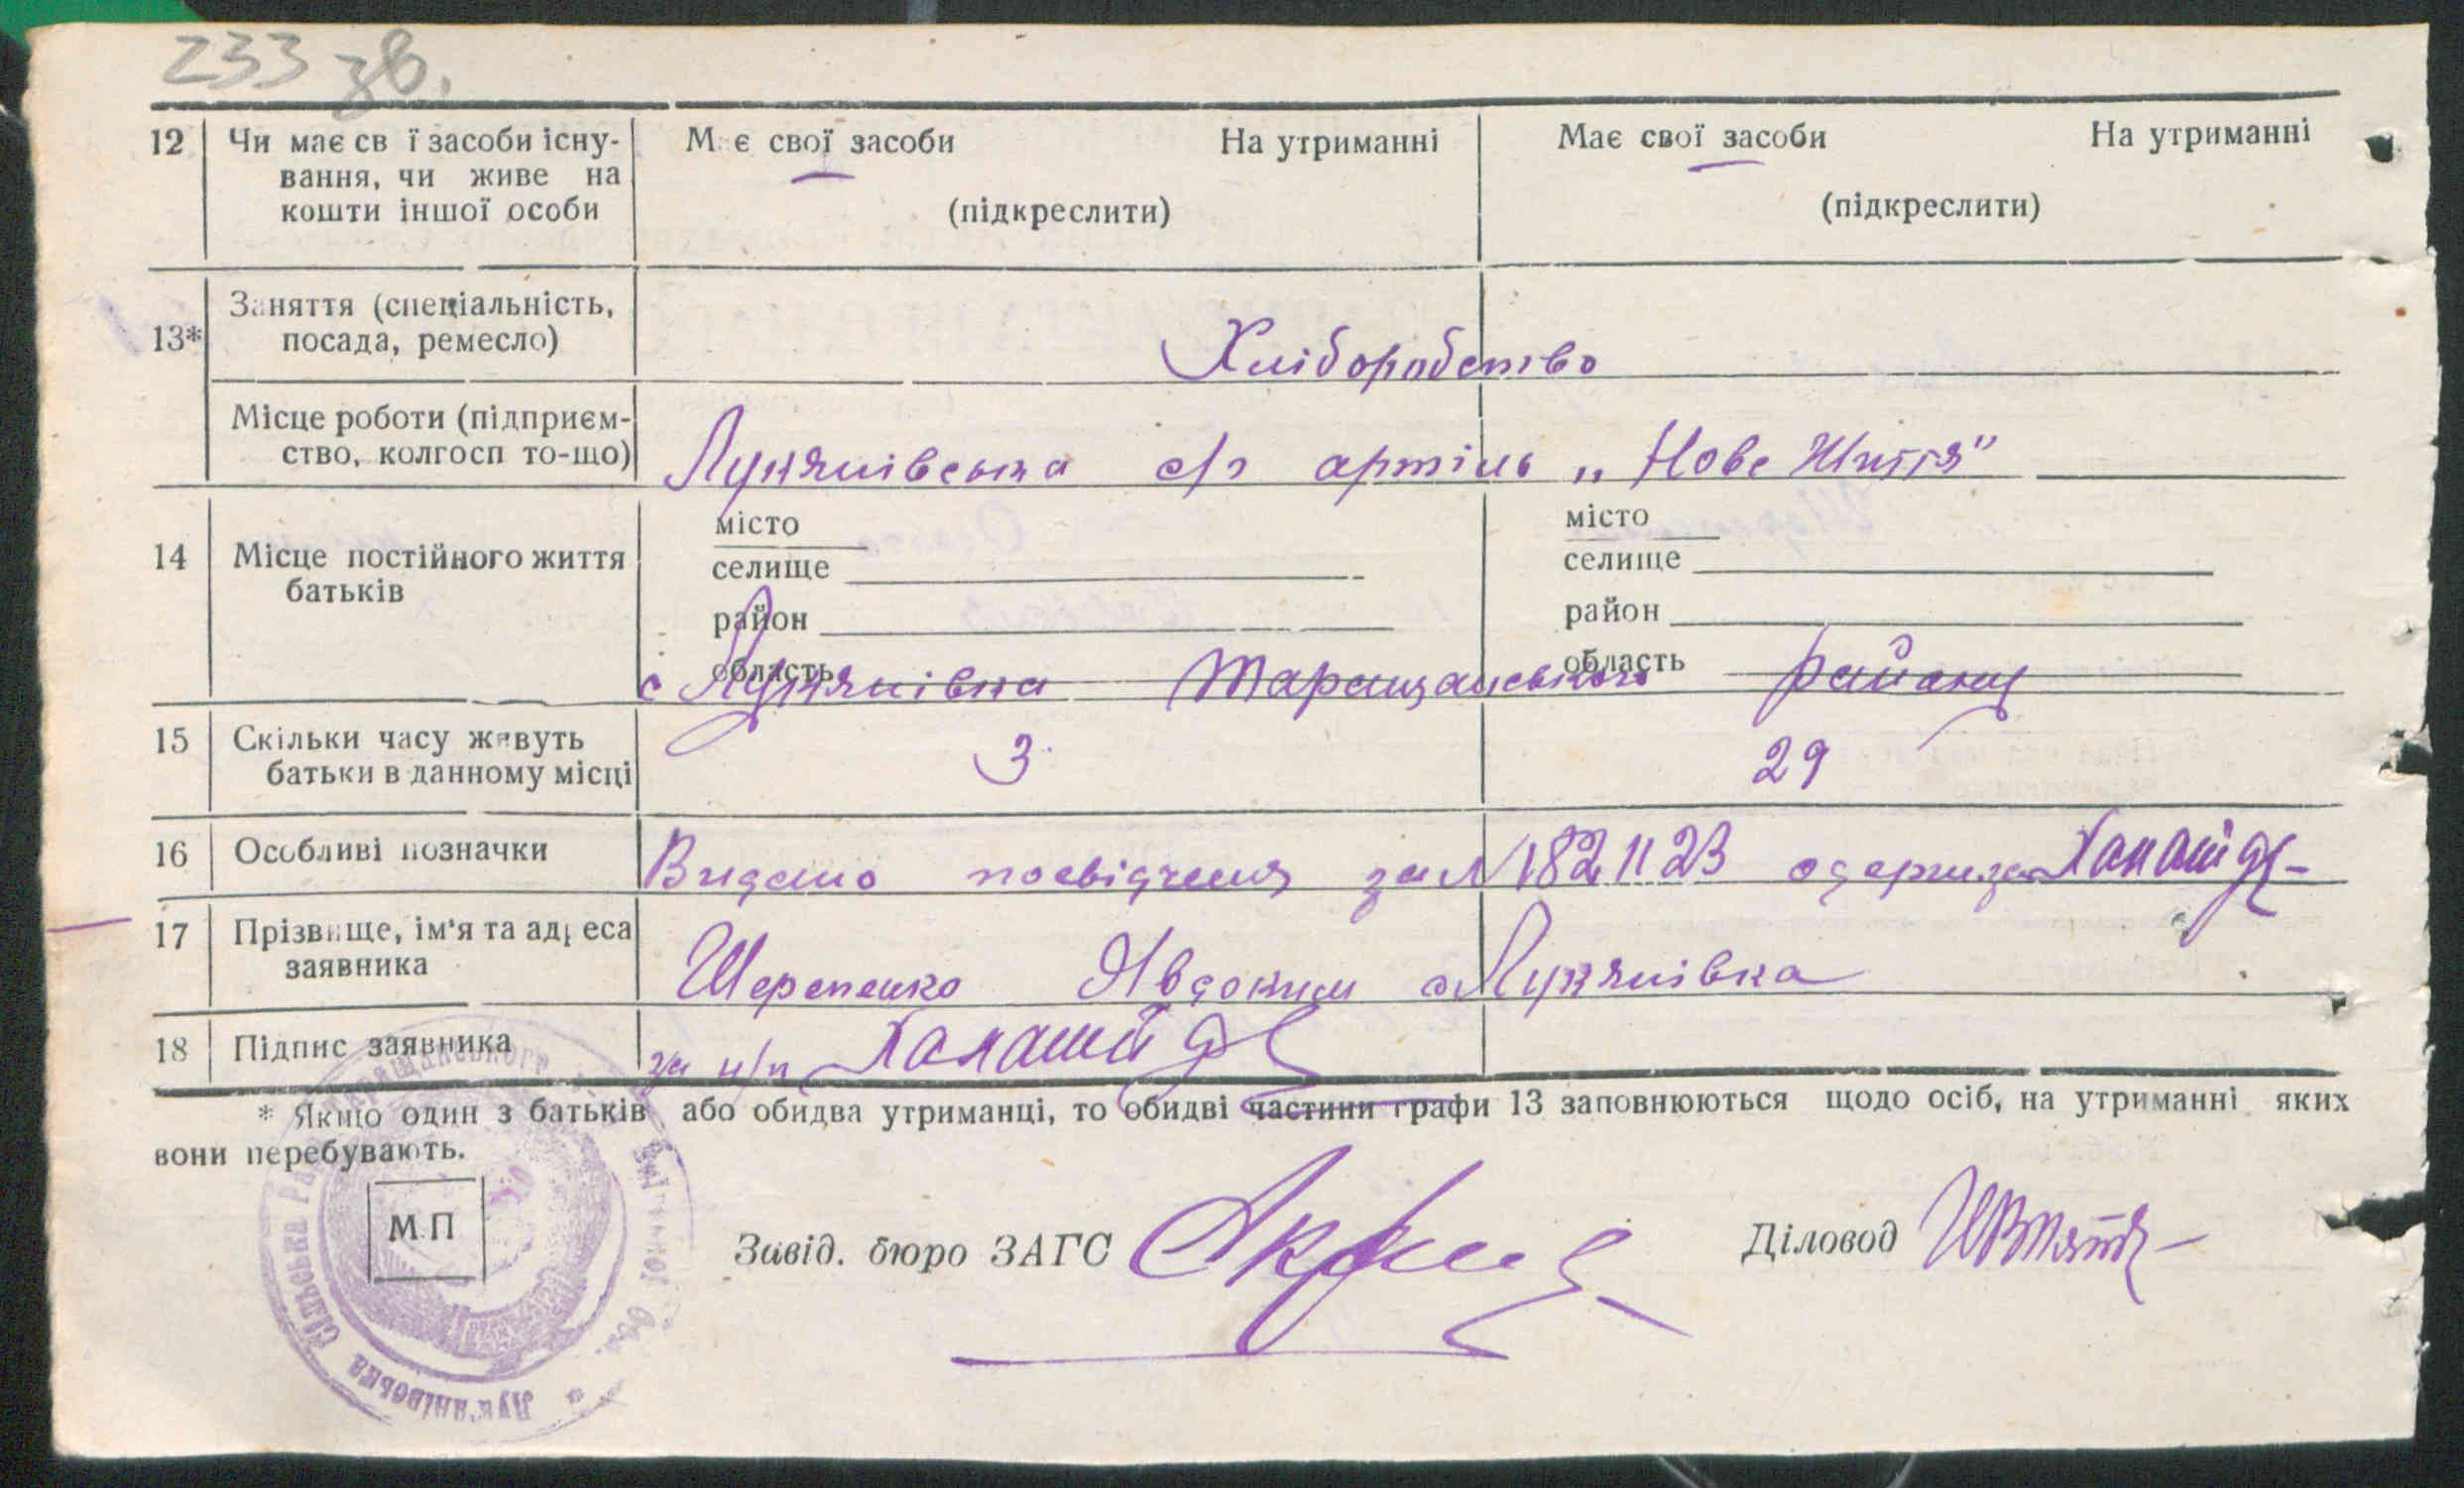 233 зв.
12 Чи має св ї засоби існу-
вання, чи живе на
кошти іншої особи
М є свої засоби На утриманні
(підкреслити)
Має свої засоби На утриманні
(підкреслити)
13* Заняття (спеціальність,
посада, ремесло)
Хліборобство
Місце роботи (підприєм-
ство, колгосп то-що)
Лукянівська с/г артіль „Нове Життя"
14 Місце постійного життя
батьків
місто
селище
район
область
місто
селище
район
область
с Лукянівка Таращанського району
15 Скільки часу живуть
батьки в данному місці
3 29
16 Особливі позначки
Видано посвідчення за № 182 11 23 одержав
17 Прізвище, ім'я та адреса
заявника
Шерепенко Явдоким с Лукянівка
18 Підпис заявника
за н/п
* Якщо один з батьків або обидва утриманці, то обидві частини графи 13 заповнюються щодо осіб, на утриманні яких
вони перебувають.
М.П
Завід. бюро ЗАГС
Діловод
Лук'янівська Сільська Рада Таращанського